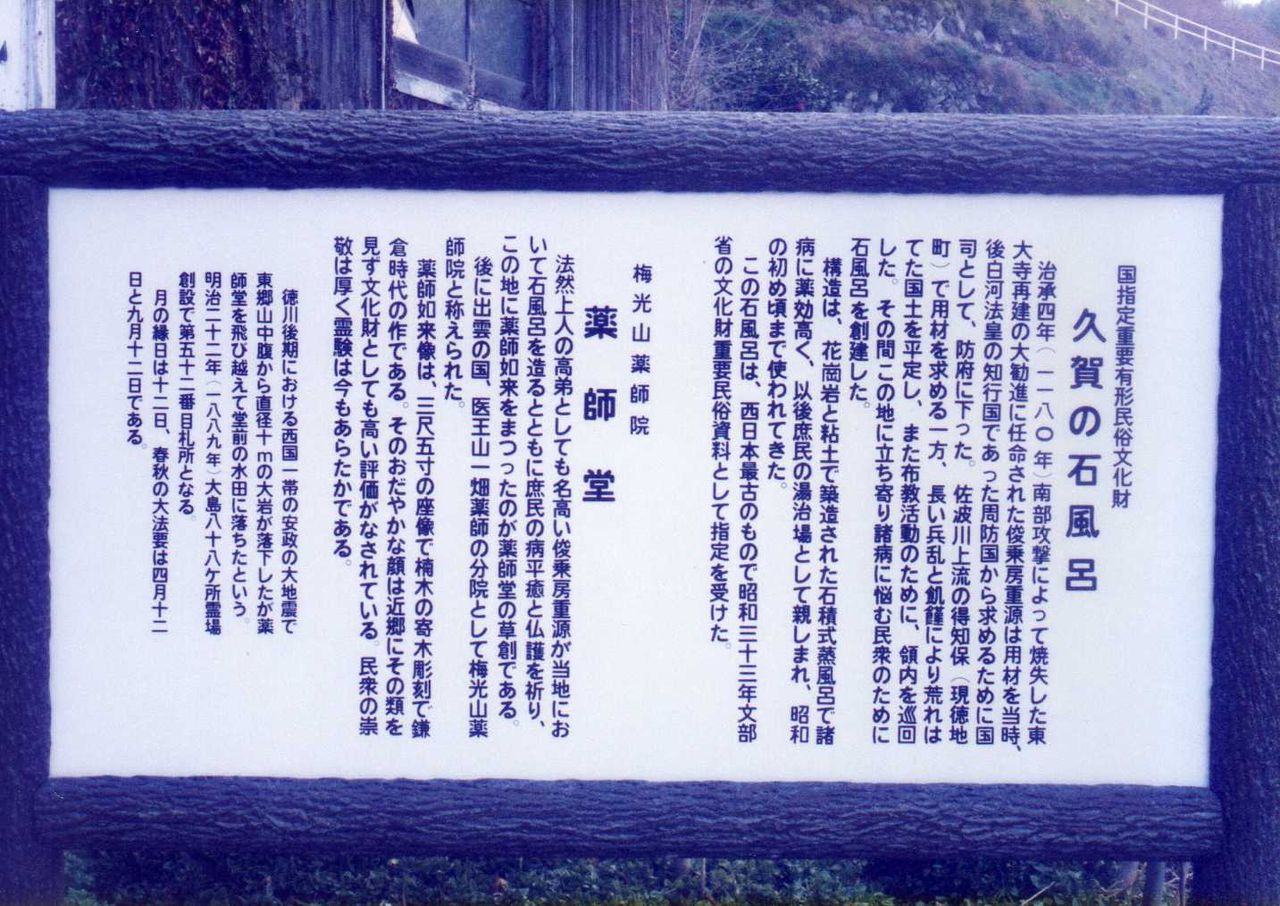 国指定重要有形民俗文化財
久賀の石風呂
治承四年(一一八〇年)南部攻撃によって焼失した東
大寺再建の大勧進に任命された俊乗房重源は用材を当時、
後白河法皇の知行国であった周防国から求めるために国
司として、防府に下った。佐波川上流の得知保(現徳地
町)で用材を求める一方、長い兵乱と飢饉により荒れは
てた国土を平定し、また布教活動のために、領内を巡回
した。その間この地に立ち寄り諸病に悩む民衆のために
石風呂を創建した。
構造は、花崗岩と粘土で築造された石積式蒸風呂で諸
病に薬効高く、以後庶民の湯治場として親しまれ、昭和
の初め頃まで使われてきた。
この石風呂は、西日本最古のもので昭和三十三年文部
省の文化財重要民俗資料として指定を受けた。
梅光山薬師院
薬師堂
法然上人の高弟としても名高い俊乗房重源が当地にお
いて石風呂を造るとともに庶民の病平癒と仏護を祈り、
この地に薬師如来をまつったのが薬師堂の草創である。
後に出雲の国、医王山一畑薬師の分院として梅光山薬
師院と称えられた。
薬師如来像は、三尺五寸の座像で楠木の寄木彫刻で鎌
倉時代の作である。そのおだやかな顔は近郷にその類を
見ず文化財としても高い評価がなされている。民衆の崇
敬は厚く霊験は今もあらたかである。
徳川後期における西国一帯の安政の大地震で
東郷山中腹から直径十mの大岩が落下したが薬
師堂を飛び越えて堂前の水田に落ちたという。
明治二十二年(一八八九年)大島八十八ケ所霊場
創設で第五十二番目札所となる。
月の縁日は十二日、春秋の大法要は四月十二
日と九月十二日である。